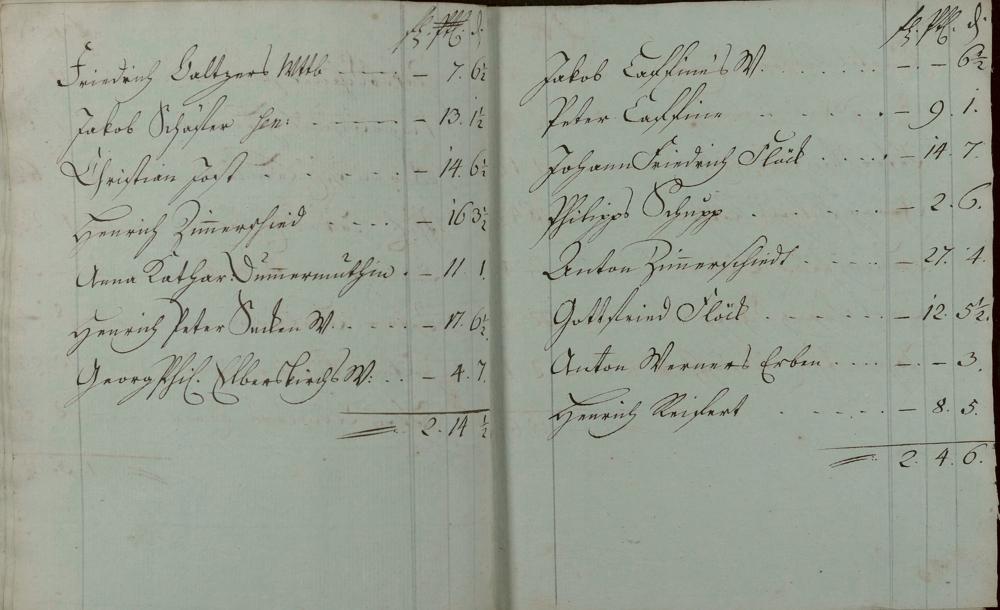 fl. Alb. d.
Friedrich Baltzers Wttb — 7. 6½
Jakob Schäffer sen: — 13. 1½
Christian Jost — 14. 6½
Henrich Zimerschied — 16 3½
Anna Kathar. Dumermuthin — 11 1.
Henrich Peter W. — 17. 6½
Georg Phil. Elberskirchs W: — 4. 7.
2. 14 ½
fl. Alb. d.
Jakob Caffine's W. — — 6½
Peter Caffine — 9. 1.
Johann Friedrich Flöck — 14. 7.
Philipps Schupp — 2. 6.
Anton Zimerschiedt — 27. 4.
Gottfried Flöck — 12. 5½.
Anton Werners Erben — — 3.
Henrich Reifert — 8. 5.
2. 4. 6.